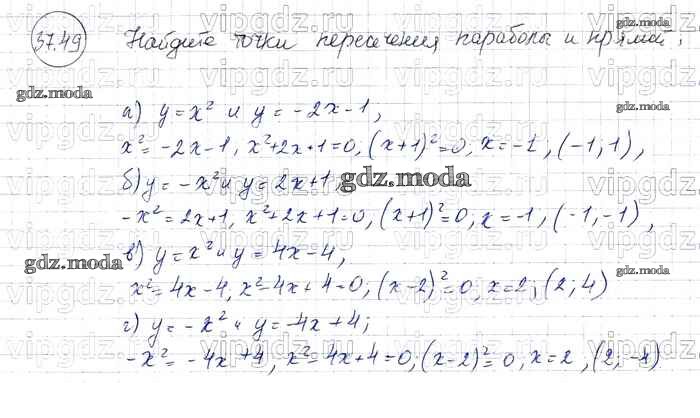 37.49 Найдите точки пересечения параболы и прямой:
а) y = x² и y = -2x-1,
x² = -2x-1, x²+2x+1=0, (x+1)²=0, x=-1, (-1;1),
б) y = -x² и y = 2x+1,
-x² = 2x+1, x²+2x+1=0, (x+1)²=0, x=-1, (-1,-1),
в) y = x² и y = 4x-4,
x² = 4x-4, x²-4x+4=0, (x-2)²=0, x=2; (2;4)
г) y = -x² и y = -4x+4;
-x² = -4x+4, x²-4x+4=0; (x-2)²=0, x=2, (2;-4)
gdz.moda
gdz.moda
gdz.moda
gdz.moda
gdz.moda
gdz.moda
gdz.moda
vipgdz.ru